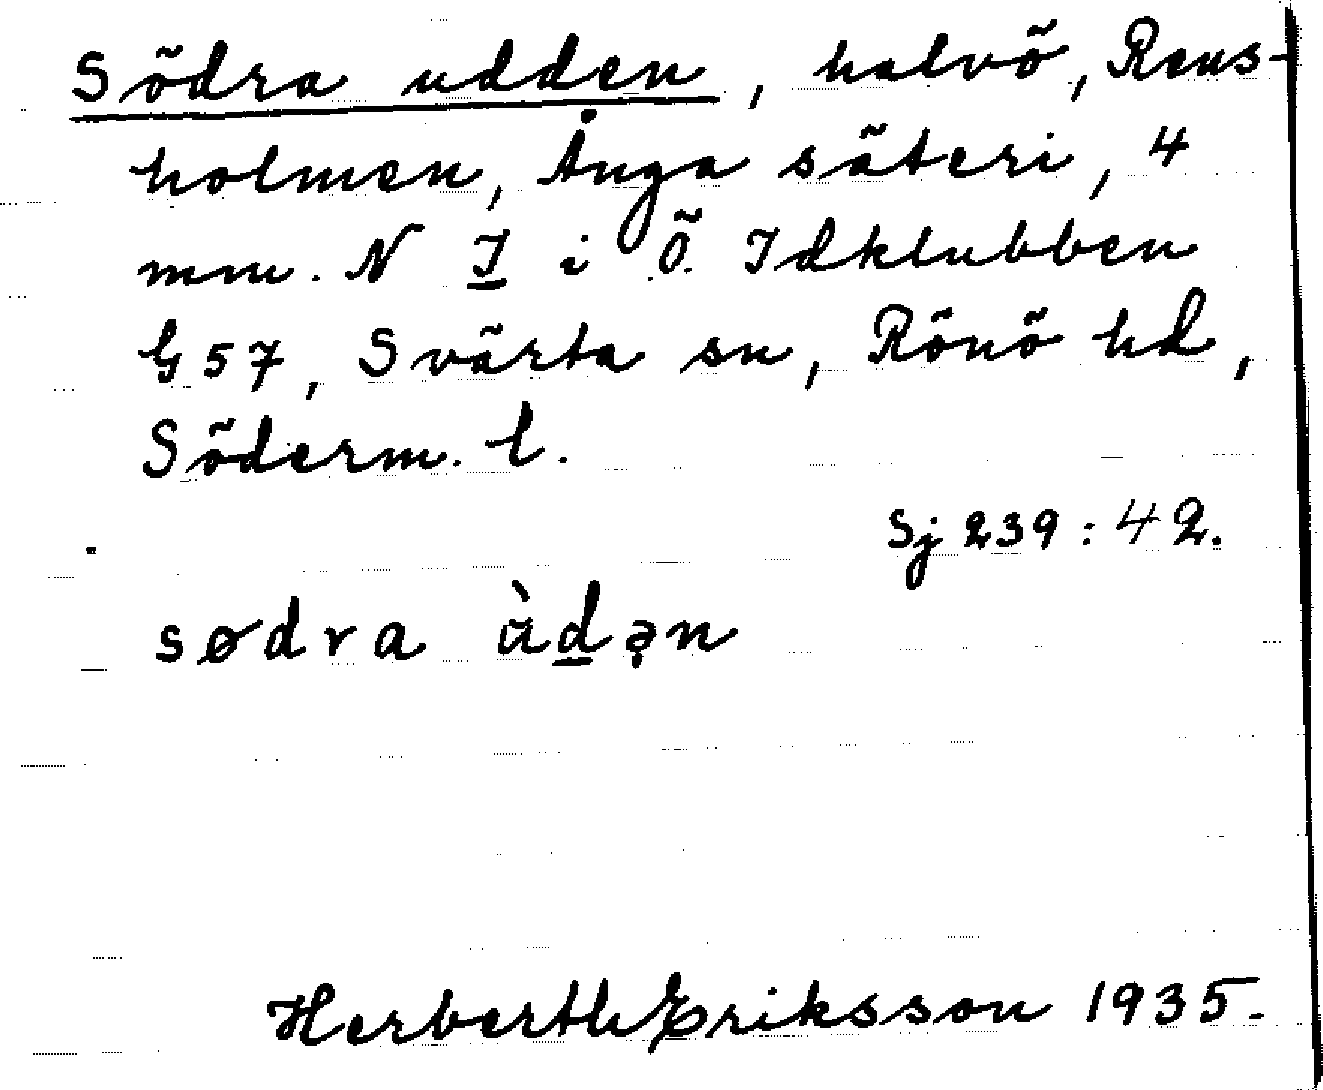 Södra udden, halvö, Rens-
holmen, Ånga säteri, 4
mm. N I i Ö. Idklubben
G 57, Svärta sn, Rönö hd,
Söderm. l.
Sj 239:42.
sødra ùdən
Herberth Eriksson 1935.